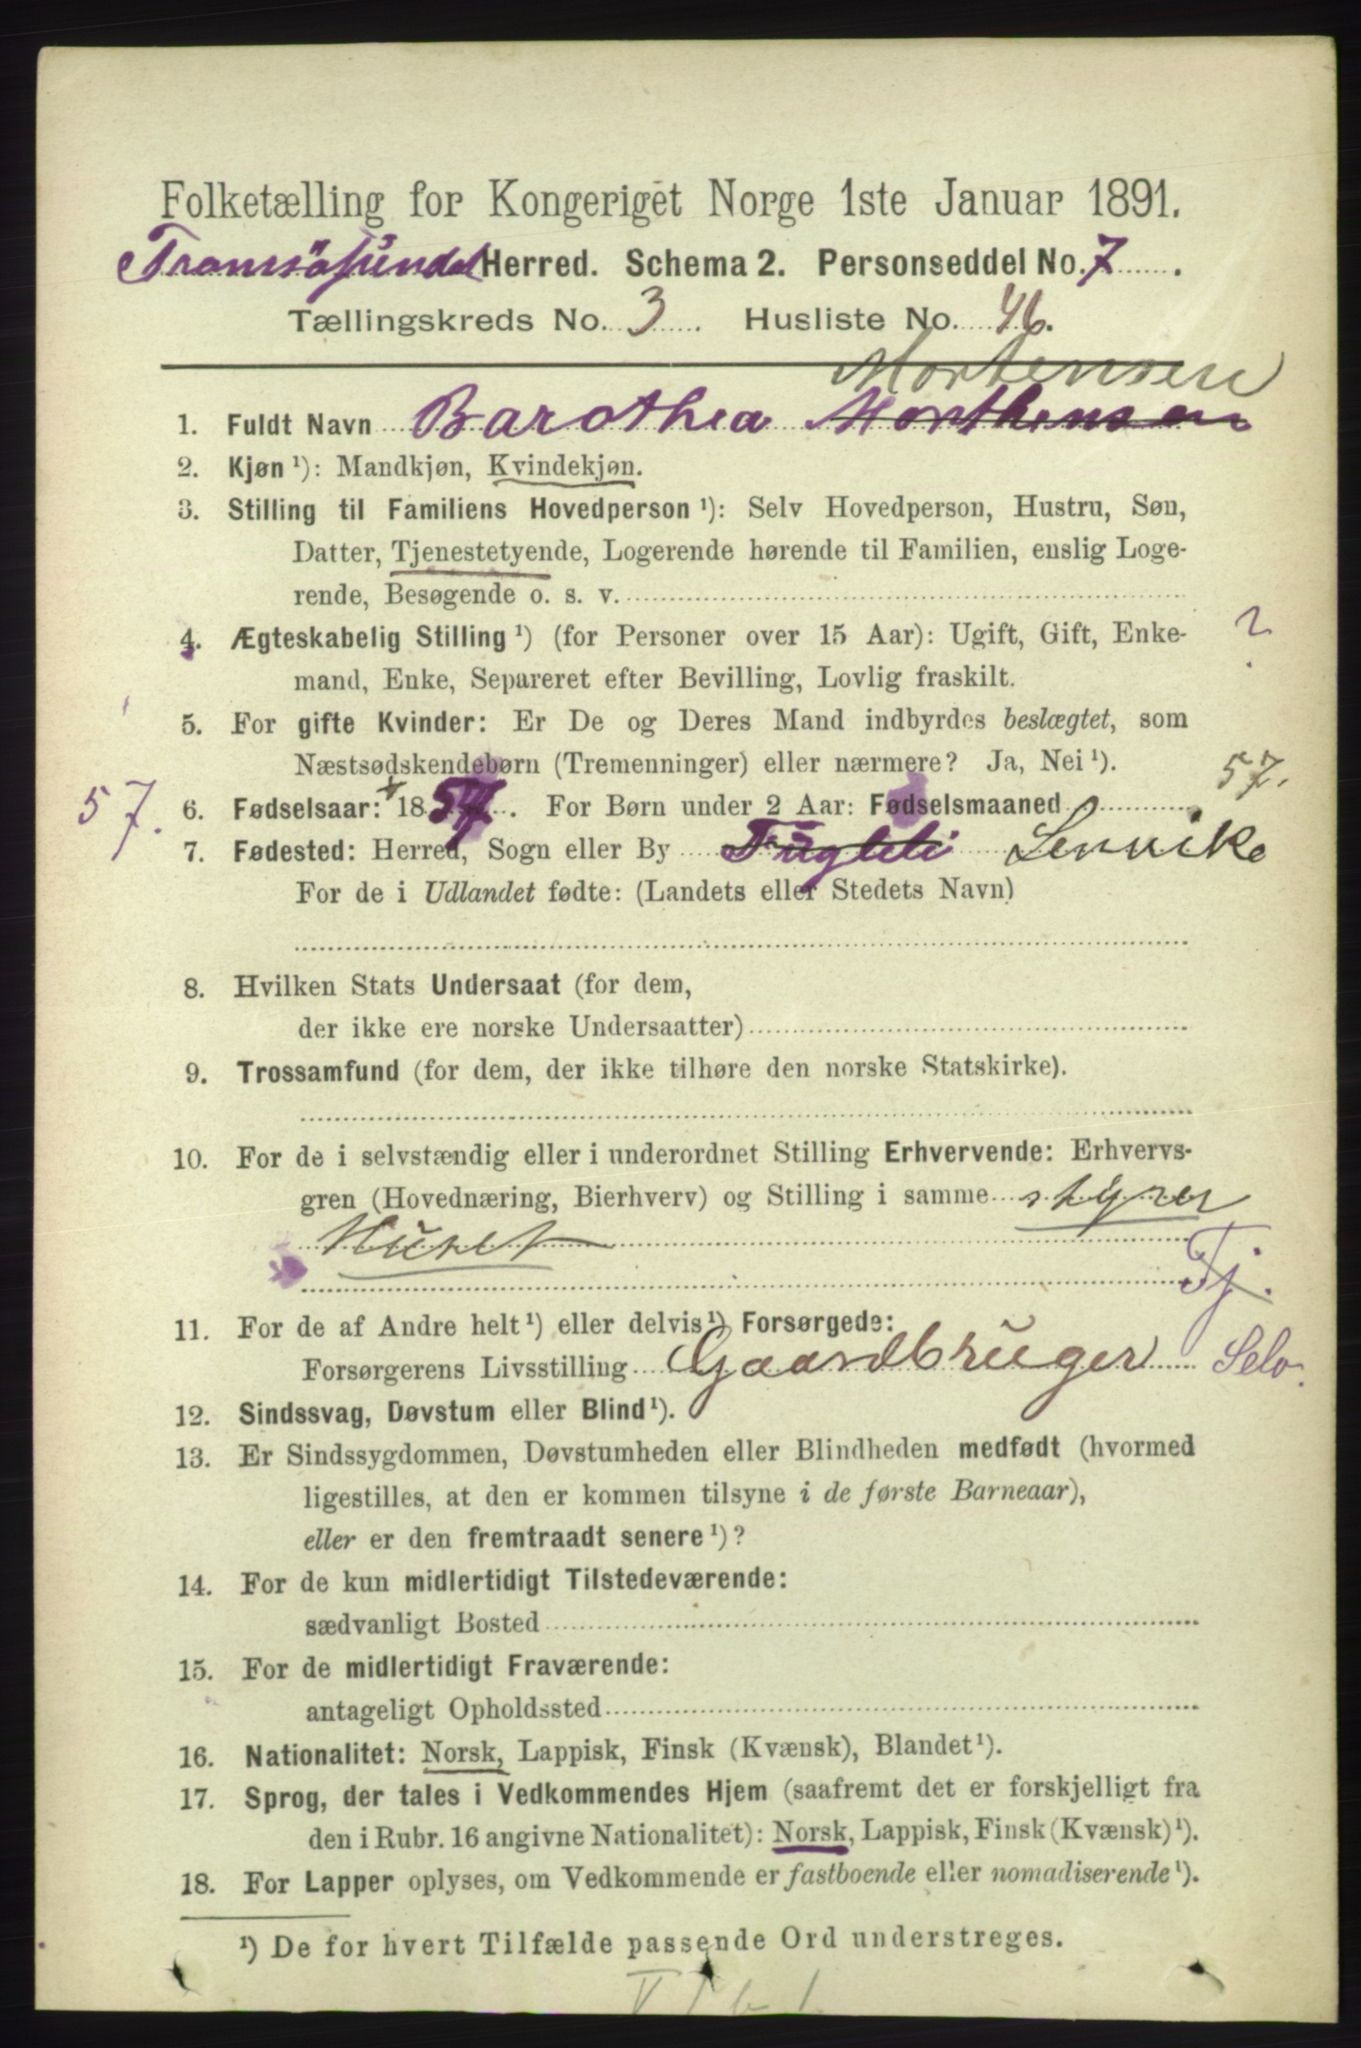 Folketælling for Kongeriget Norge 1ste Januar 1891.
Tromsøsundet Herred. Schema 2. Personseddel No. 7.
Tællingskreds No. 3. Husliste No. 46.
Mortensen
1. Fuldt Navn Barothea Morthensen
2. Kjøn ¹): Mandkjøn, Kvindekjøn.
3. Stilling til Familiens Hovedperson ¹): Selv Hovedperson, Hustru, Søn,
Datter, Tjenestetyende, Logerende hørende til Familien, enslig Loge-
rende, Besøgende o. s. v.
4. Ægteskabelig Stilling ¹) (for Personer over 15 Aar): Ugift, Gift, Enke- ?
mand, Enke, Separeret efter Bevilling, Lovlig fraskilt.
5. For gifte Kvinder: Er De og Deres Mand indbyrdes beslægtet, som
Næstsødskendebørn (Tremenninger) eller nærmere? Ja, Nei ¹).
57. 6. Fødselsaar: 1857. For Børn under 2 Aar: Fødselsmaaned 57.
7. Fødested: Herred, Sogn eller By Fugleli Lenvike
For de i Udlandet fødte: (Landets eller Stedets Navn)
8. Hvilken Stats Undersaat (for dem,
der ikke ere norske Undersaatter)
9. Trossamfund (for dem, der ikke tilhøre den norske Statskirke).
10. For de i selvstændig eller i underordnet Stilling Erhvervende: Erhvervs-
gren (Hovednæring, Bierhverv) og Stilling i samme styrer
Huset
Tj.
11. For de af Andre helt ¹) eller delvis ¹) Forsørgede:
Forsørgerens Livsstilling Gaardbruger Selv.
12. Sindssvag, Døvstum eller Blind ¹).
13. Er Sindssygdommen, Døvstumheden eller Blindheden medfødt (hvormed
ligestilles, at den er kommen tilsyne i de første Barneaar),
eller er den fremtraadt senere ¹)?
14. For de kun midlertidigt Tilstedeværende:
sædvanligt Bosted
15. For de midlertidigt Fraværende:
antageligt Opholdssted
16. Nationalitet: Norsk, Lappisk, Finsk (Kvænsk), Blandet ¹).
17. Sprog, der tales i Vedkommendes Hjem (saafremt det er forskjelligt fra
den i Rubr. 16 angivne Nationalitet): Norsk, Lappisk, Finsk (Kvænsk) ¹).
18. For Lapper oplyses, om Vedkommende er fastboende eller nomadiserende ¹).
¹) De for hvert Tilfælde passende Ord understreges.